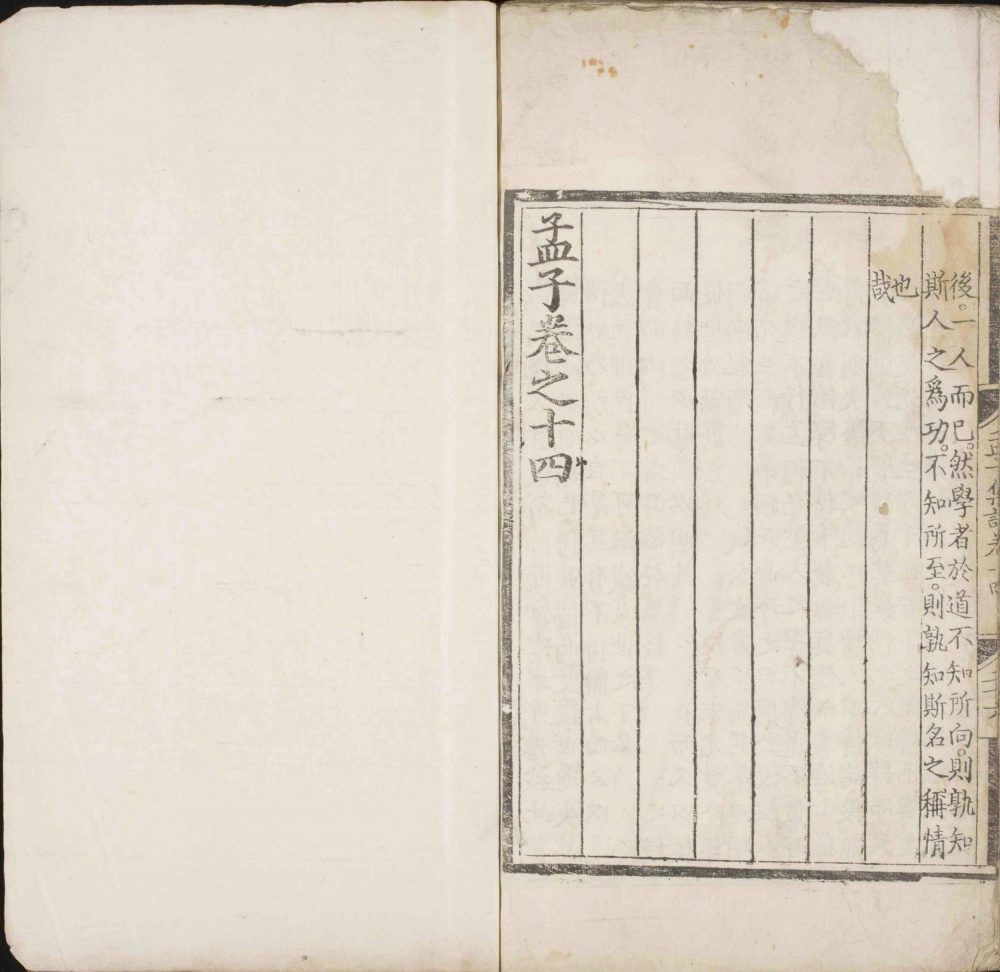 後。一人而已。然學者於道不知所向。則孰知
斯人之爲功。不知所至。則孰知斯名之稱情
也
哉
孟子卷之十四